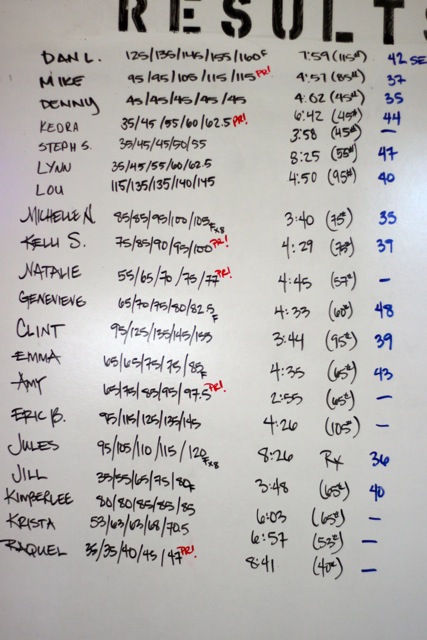 RESULTS
DAN L. 125/135/145/155/160F 7:59 (115#) 42 SE
MIKE 95/95/105/115/115 PR! 4:57 (85#) 37
DENNY 45/45/45/45/45 4:02 (45#) 35
KEDRA 35/45/55/60/62.5 PR! 6:42 (45#) 44
STEPH S. 35/45/45/50/55 3:58 (45#) —
LYNN 35/45/55/60/62.5 8:25 (55#) 47
LOU 115/135/135/140/145 4:50 (95#) 40
MICHELLE N. 85/85/95/100/105Fx8 3:40 (75#) 35
KELLI S. 75/85/90/95/100 PR! 4:29 (75#) 39
NATALIE 55/65/70/75/77 PR! 4:45 (57#) —
GENEVIEVE 65/70/75/80/82.5F 4:33 (60#) 48
CLINT 95/125/135/145/155 3:44 (95#) 39
EMMA 65/65/75/75/85F 4:35 (65#) 43
AMY 65/75/85/95/97.5 PR! 2:55 (65#) —
ERIC B. 95/115/125/135/145 4:26 (105#) —
JULES 95/105/110/115/120Fx8 8:26 Rx 36
JILL 35/55/65/75/80F 3:48 (65#) 40
KIMBERLEE 80/80/85/85/85 6:03 (65#) —
KRISTA 53/63/63/68/70.5 6:57 (53#) —
RAQUEL 35/35/40/45/47 PR! 8:41 (40#) —